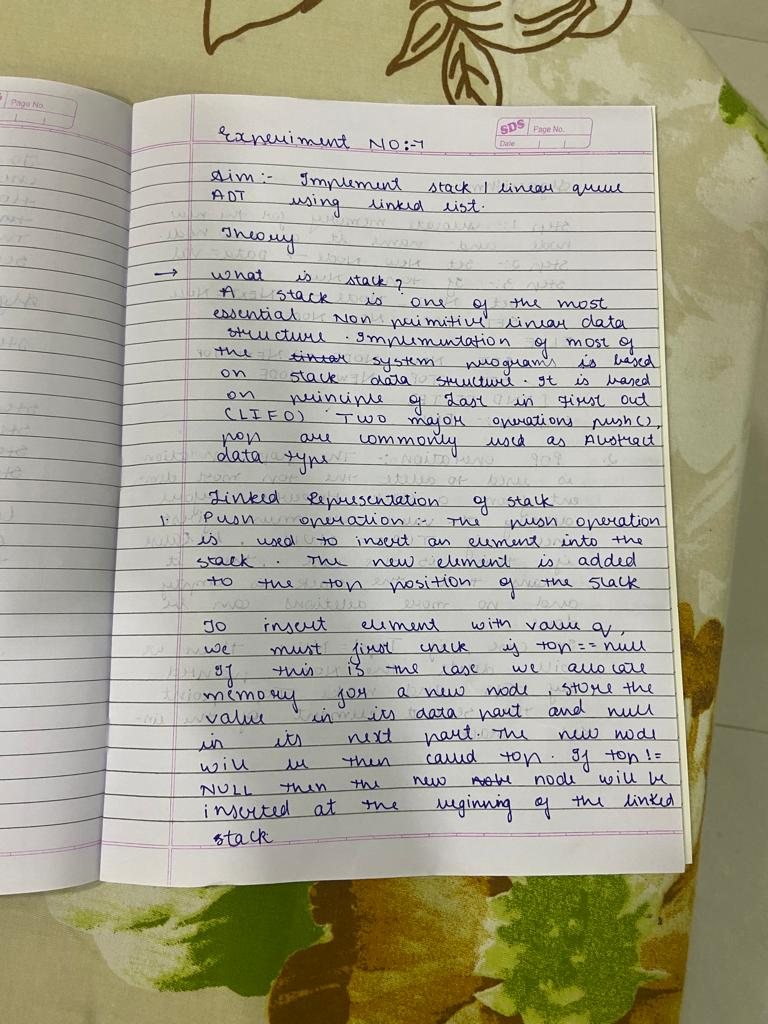 Page No.
SDS Page No.
Date
Experiment NO:-7
Aim:- Implement stack / linear queue
ADT using linked list.
Theory
→ What is stack?
A stack is one of the most
essential Non primitive linear data
structure. Implementation of most of
the linear system programs is based
on stack data structure. It is based
on principle of Last in First out
(LIFO) Two major operations push(),
pop are commonly used as Abstract
data type
Linked Representation of stack
1. Push operation :- The push operation
is used to insert an element into the
stack. The new element is added
to the top position of the stack
To insert element with value 9,
we must first check if top == null
If this is the case we allocate
memory for a new node, store the
value in its data part and null
in its next part. The new node
will be then called top. If top !=
NULL then the new node will be
inserted at the beginning of the linked
stack